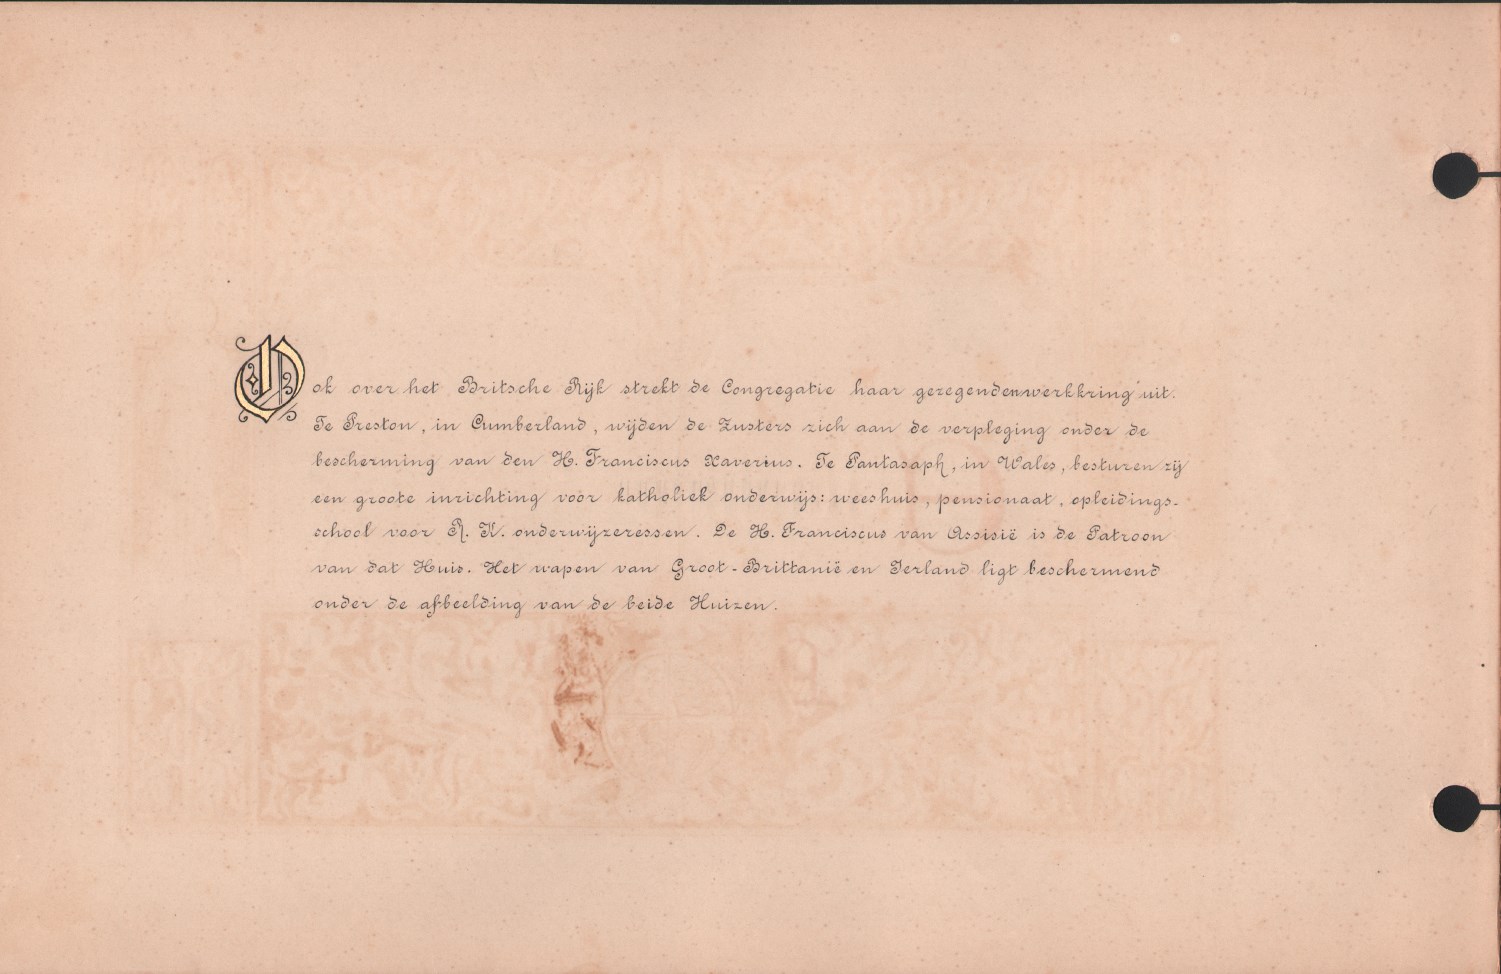 Ook over het Britsche Rijk strekt de Congregatie haar gezegenden werkkring uit.
Te Preston, in Cumberland, wijden de Zusters zich aan de verpleging onder de
bescherming van den H. Franciscus Xaverius. Te Pantasaph, in Wales, besturen zij
een groote inrichting voor katholiek onderwijs: weeshuis, pensionaat, opleidings-
school voor R. K. onderwijzeressen. De H. Franciscus van Assisië is de Patroon
van dat Huis. Het wapen van Groot-Brittanië en Ierland ligt beschermend
onder de afbeelding van de beide Huizen.